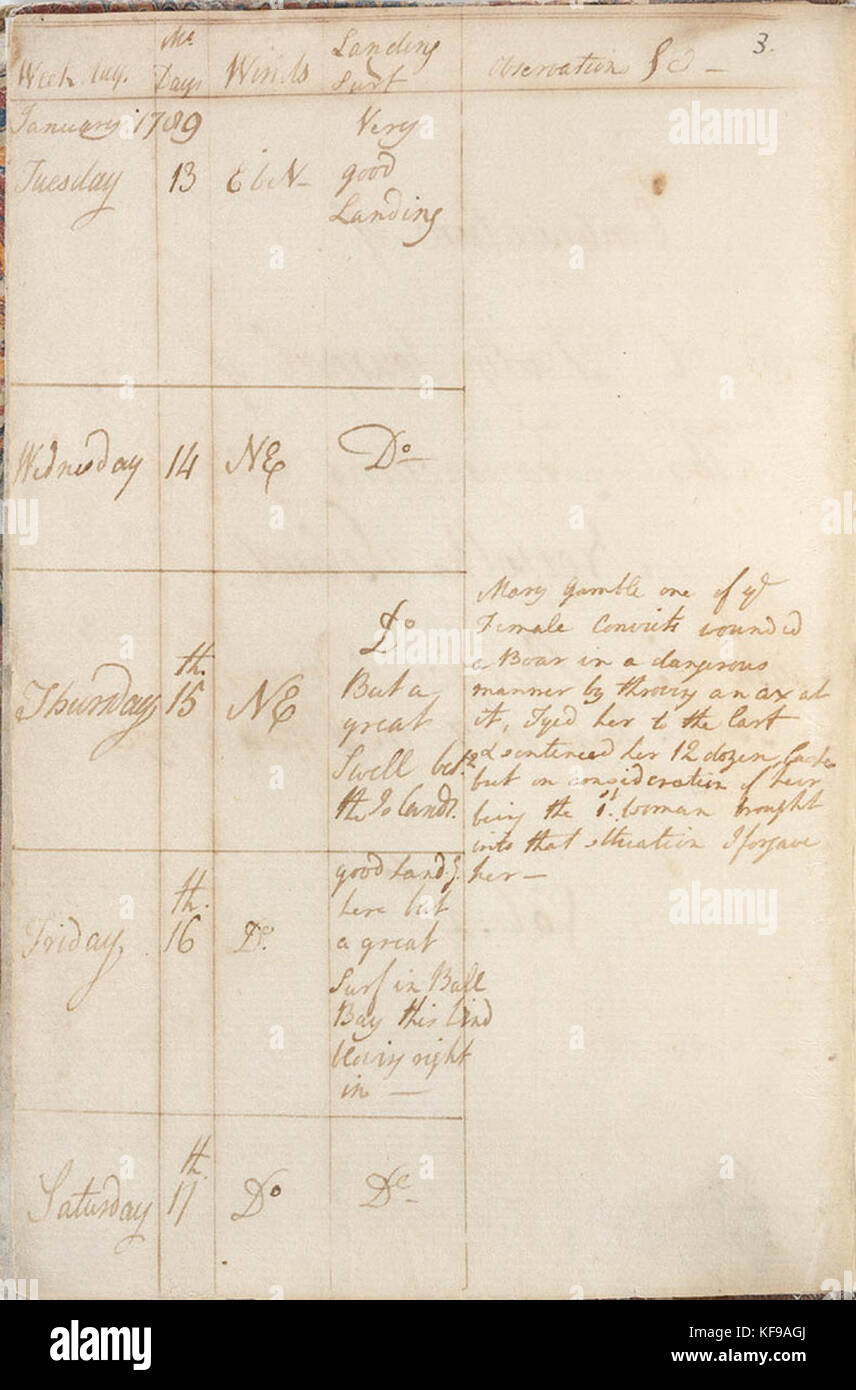 3.
Week day. Mo. Days Winds Landing Surf Observations &c —
January 1789
Tuesday 13 E b N — Very
good
Landing
Wednesday 14 NE Do
Thursday 15th NE Do
But a
great
Swell bet.
the Islands.
Mary Gamble one of ye
Female Convicts wounded
a Boar in a dangerous
manner by throwing an ax at
it, Tyed her to the Cart
& sentenced her 12 dozen Lashes
but on consideration of heir
being the 1st. woman brought
into that situation I forgave
her —
Friday 16th. Do. good Landg.
here but
a great
Surf in Ball
Bay this Wind
blowing right
in —
Saturday 17th Do Do
alamy
alamy
Image ID: KF9AGJ
www.alamy.com